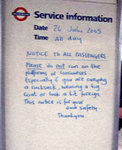 Service information
Date 26 July 2005
Time All day
NOTICE TO ALL PASSENGERS
Please do not run on the
platforms or concourses
Especially if you are carrying
a rucksack, wearing a big
coat or look a bit foreign
This notice is for your
own safety.
Thankyou